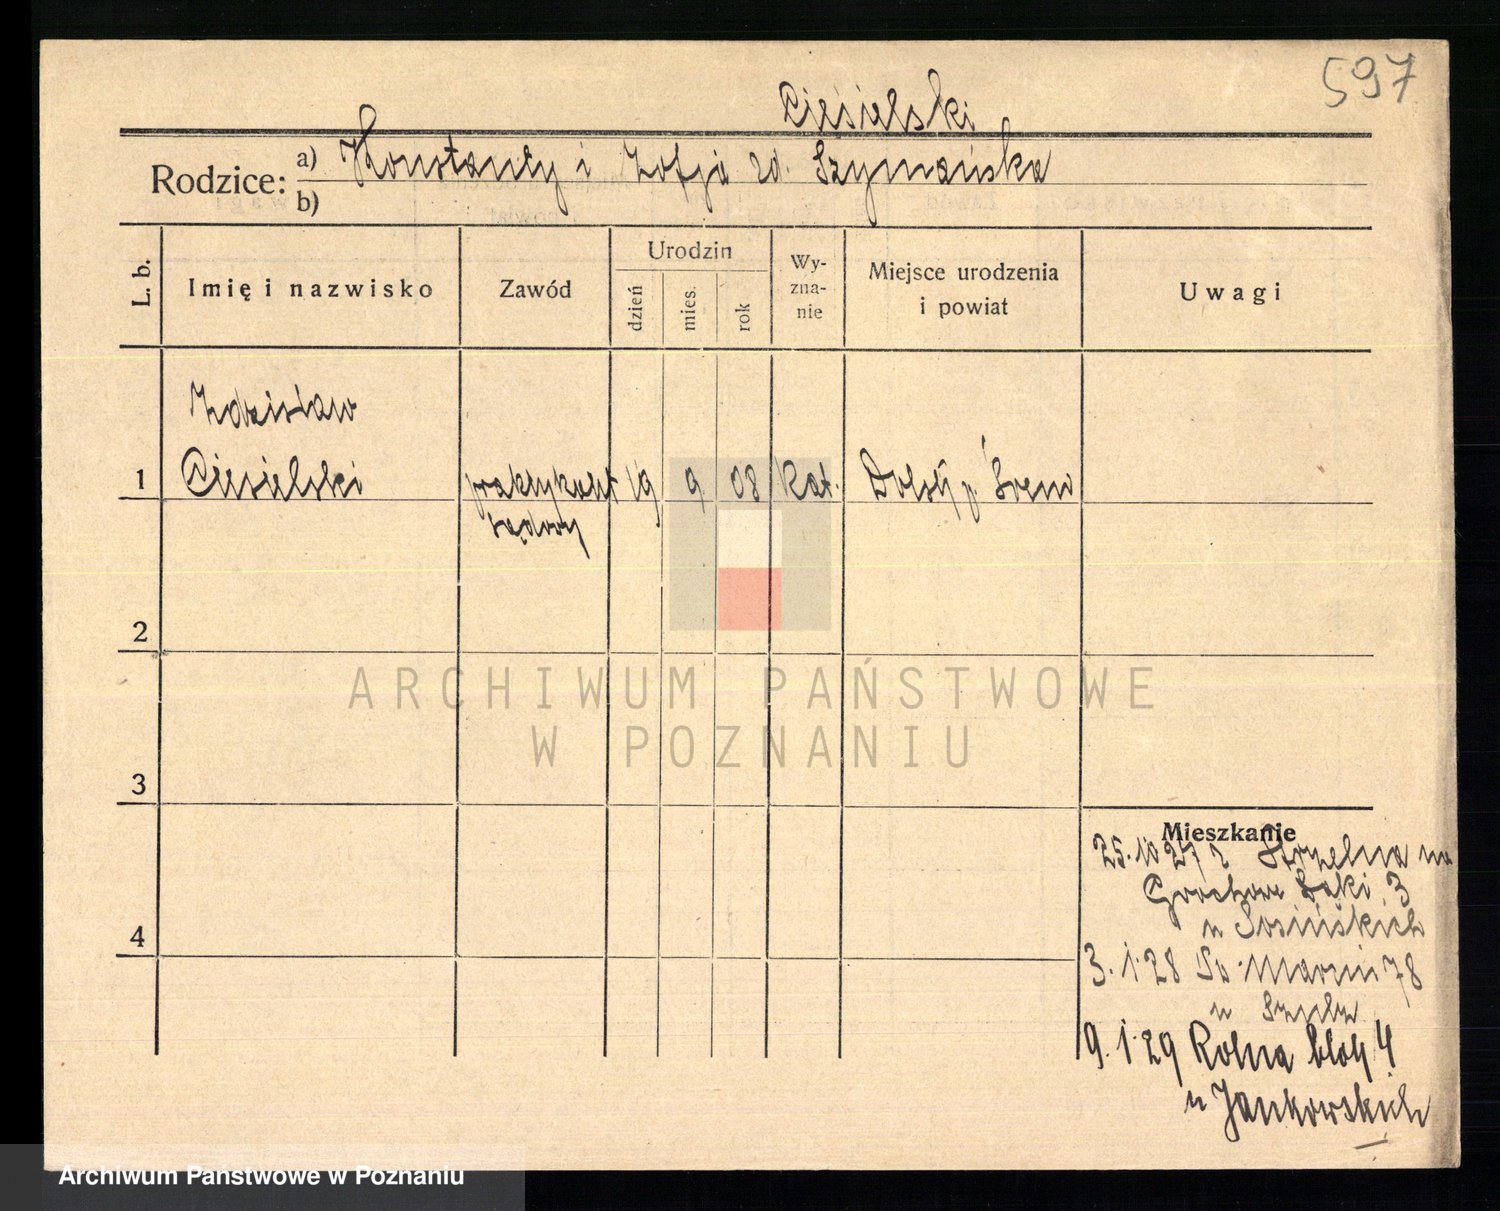 597
Ciesielski
Rodzice: a) Konstanty i Zofja zd. Szymańska
b)
L. b. Imię i nazwisko Zawód Urodzin dzień mies. rok Wyznanie Miejsce urodzenia i powiat Uwagi
Zdzisław
1 Ciesielski praktykant 19 9 08 kat. Dolsk p. Śrem
sądowy
2
ARCHIWUM PAŃSTWOWE
W POZNANIU
3
Mieszkanie
25.10 27 z Strzelna na
Grochowe Łąki 3
u Sosińskich
4
3.1.28 Św. Marcin 78
u
9.1.29 Rolna blok 4
u Jankowskich
Archiwum Państwowe w Poznaniu